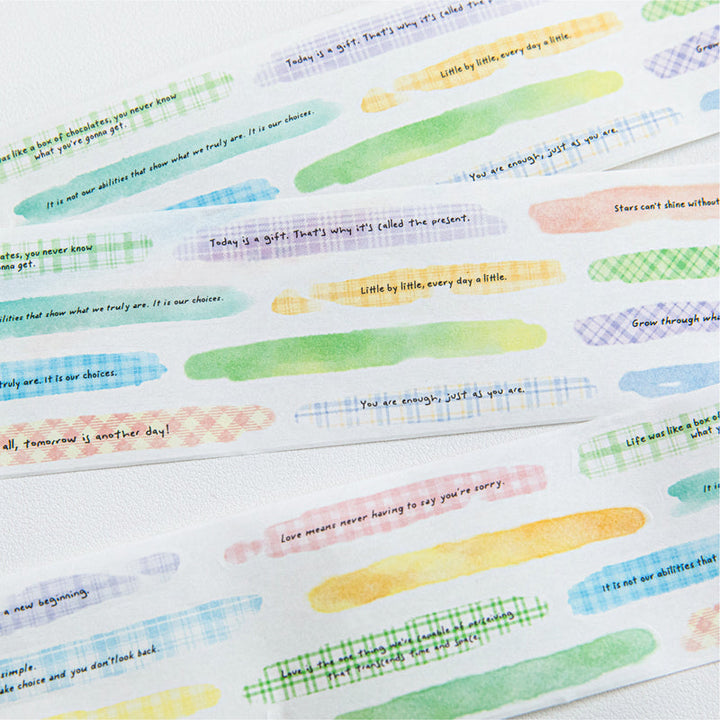 Today is a gift. That's why it's called the
Little by little, every day a little.
Grow
was like a box of chocolates, you never know
what you're gonna get.
It is not our abilities that show what we truly are. It is our choices.
You are enough, just as you are.
Stars can't shine without
Today is a gift. That's why it's called the present.
ates, you never know
nna get.
Little by little, every day a little.
ilities that show what we truly are. It is our choices.
Grow through wha
truly are. It is our choices.
You are enough, just as you are.
all, tomorrow is another day!
Life was like a box of
what y
Love means never having to say you're sorry.
It is
It is not our abilities that
a new beginning.
Love is the one thing we're capable of perceiving
that transcends time and space.
simple.
ake choice and you don'tlook back.